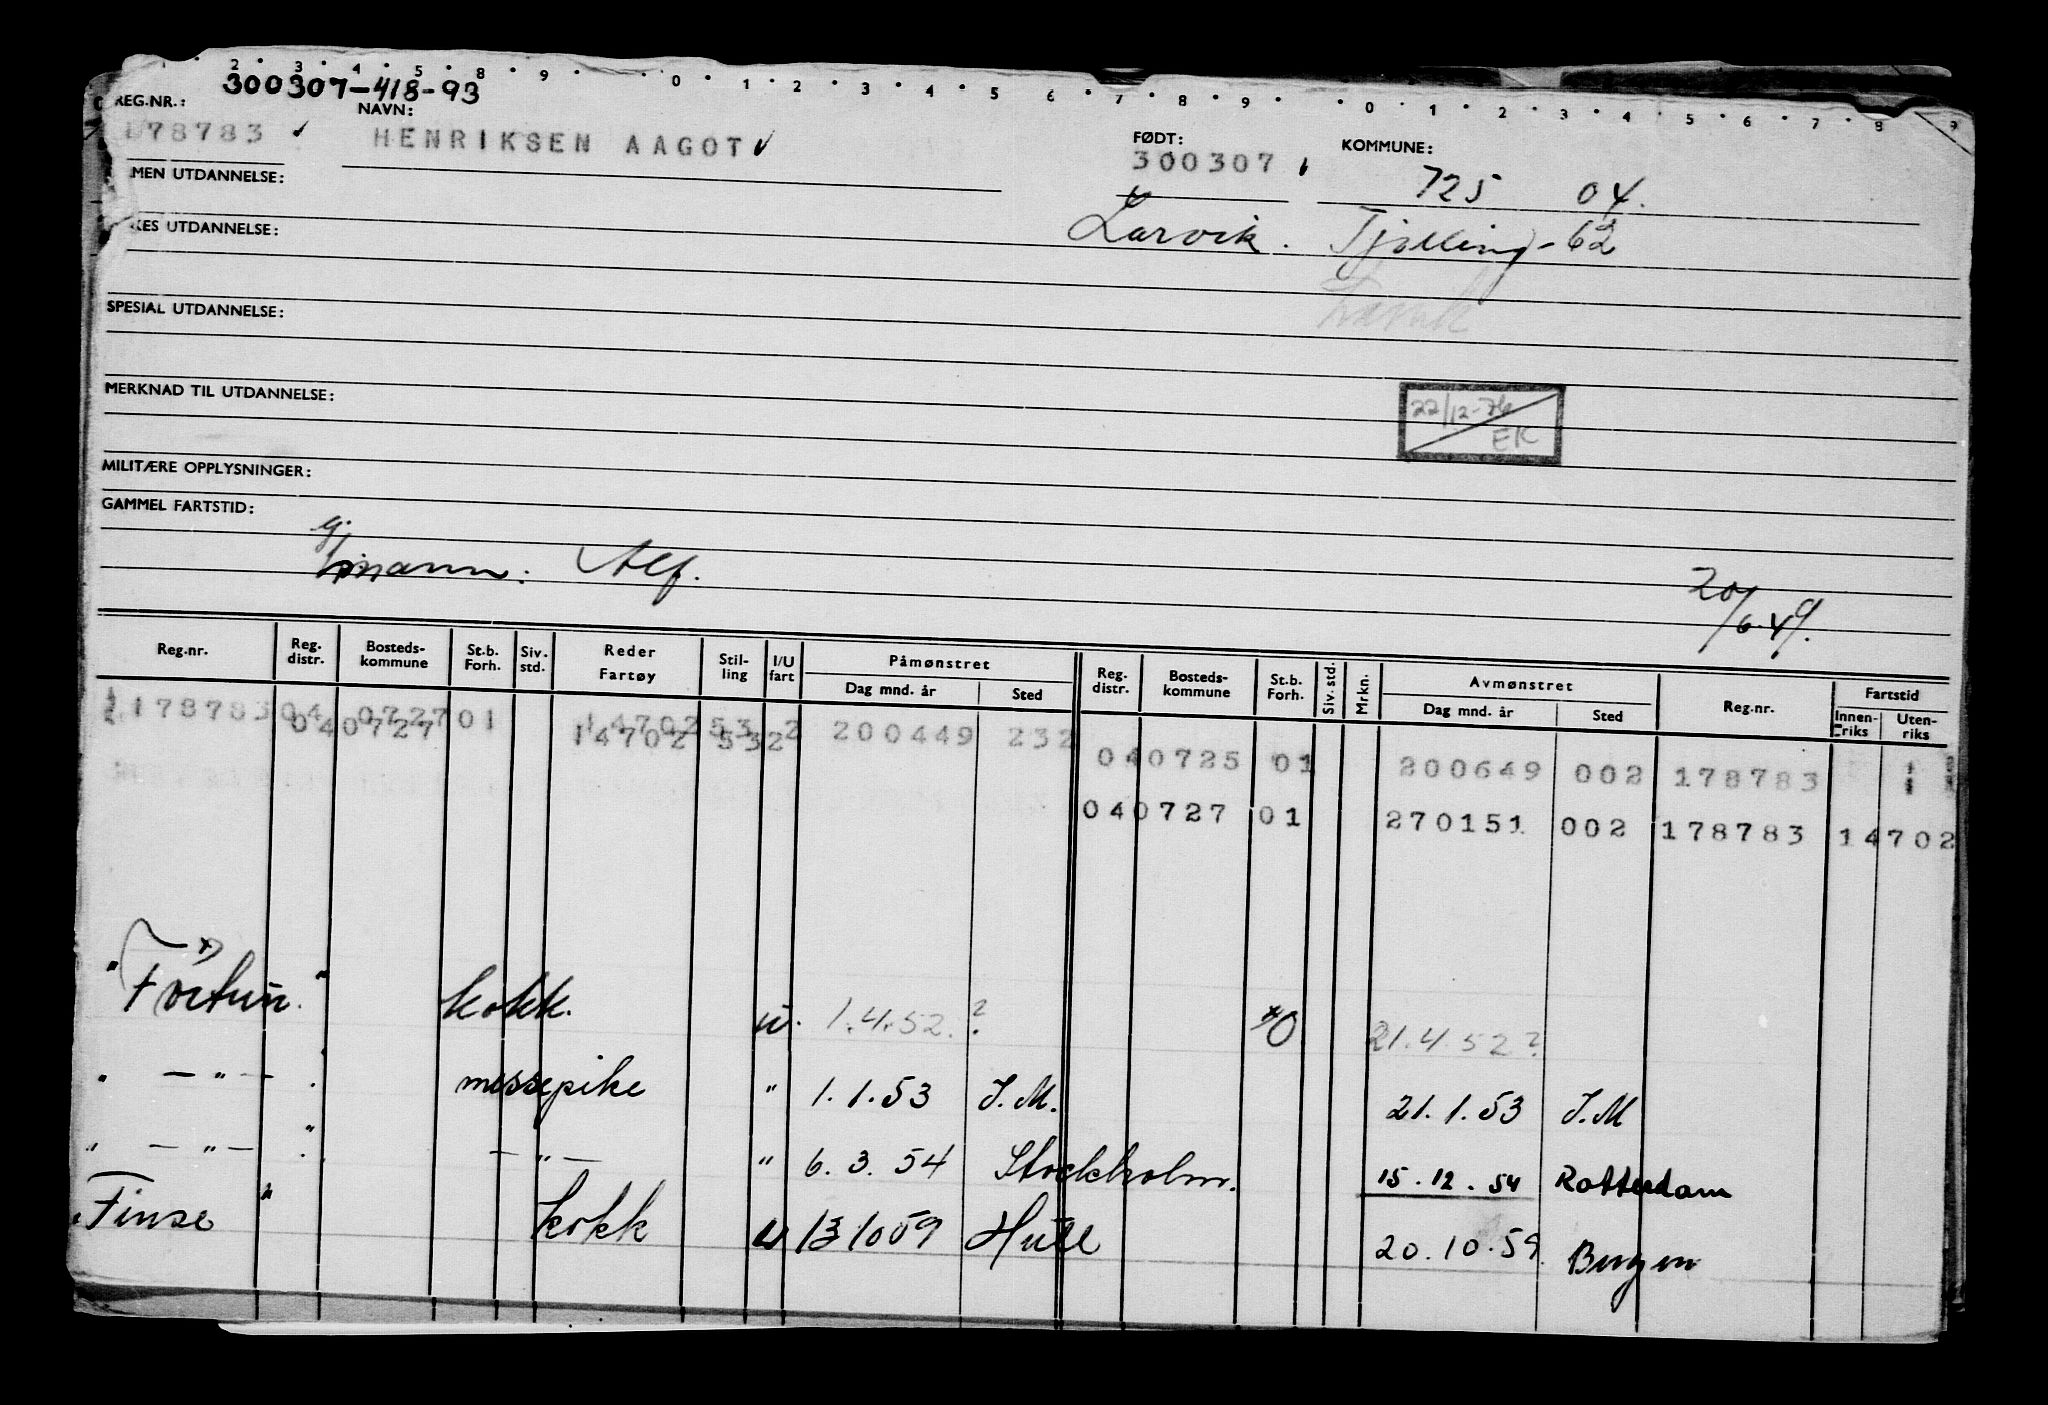 2 3 4 5 8 9 0 1 2 3 4 5 6 7 8 9 0 1 2 3 4 5 6 7 8 9
300307-418-93
REG.NR.: NAVN: FØDT: KOMMUNE:
178783 ✓ HENRIKSEN AAGOT ✓ 300307 725 04.
MEN UTDANNELSE:
Larvik. Tjølling - 62
KES UTDANNELSE:
Larvik
SPESIAL UTDANNELSE:
MERKNAD TIL UTDANNELSE:
22/12-76
EK
MILITÆRE OPPLYSNINGER:
GAMMEL FARTSTID:
gj. mann: Alf.
20/6.49.
Reg.nr. Reg. distr. Bosteds-kommune St.b. Forh. Siv. std. Reder Fartøy Stil-ling I/U fart Påmønstret Dag mnd. år Sted Reg. distr. Bosteds-kommune St.b. Forh. Siv. std. Mrkn. Avmønstret Dag mnd. år Sted Reg.nr. Fartstid Innen-riks Uten-riks
178783 04 0727 01 14702 53 2 200449 232
04 0727 14702 53 2
04 0725 01 200649 002 178783
04 0727 01 270151 002 178783 14702
x)
"Fortun." kokk. u. 1.4.52.? x0 21.4.52?
" — " — . messepike " 1.1.53 J.M. 21.1.53 J.M
" — " — " — " — " 6.3.54 Stockholm. 15.12.54 Rotterdam
"Finse" kokk u 13 10 59 Hull 20.10.59. Bergen